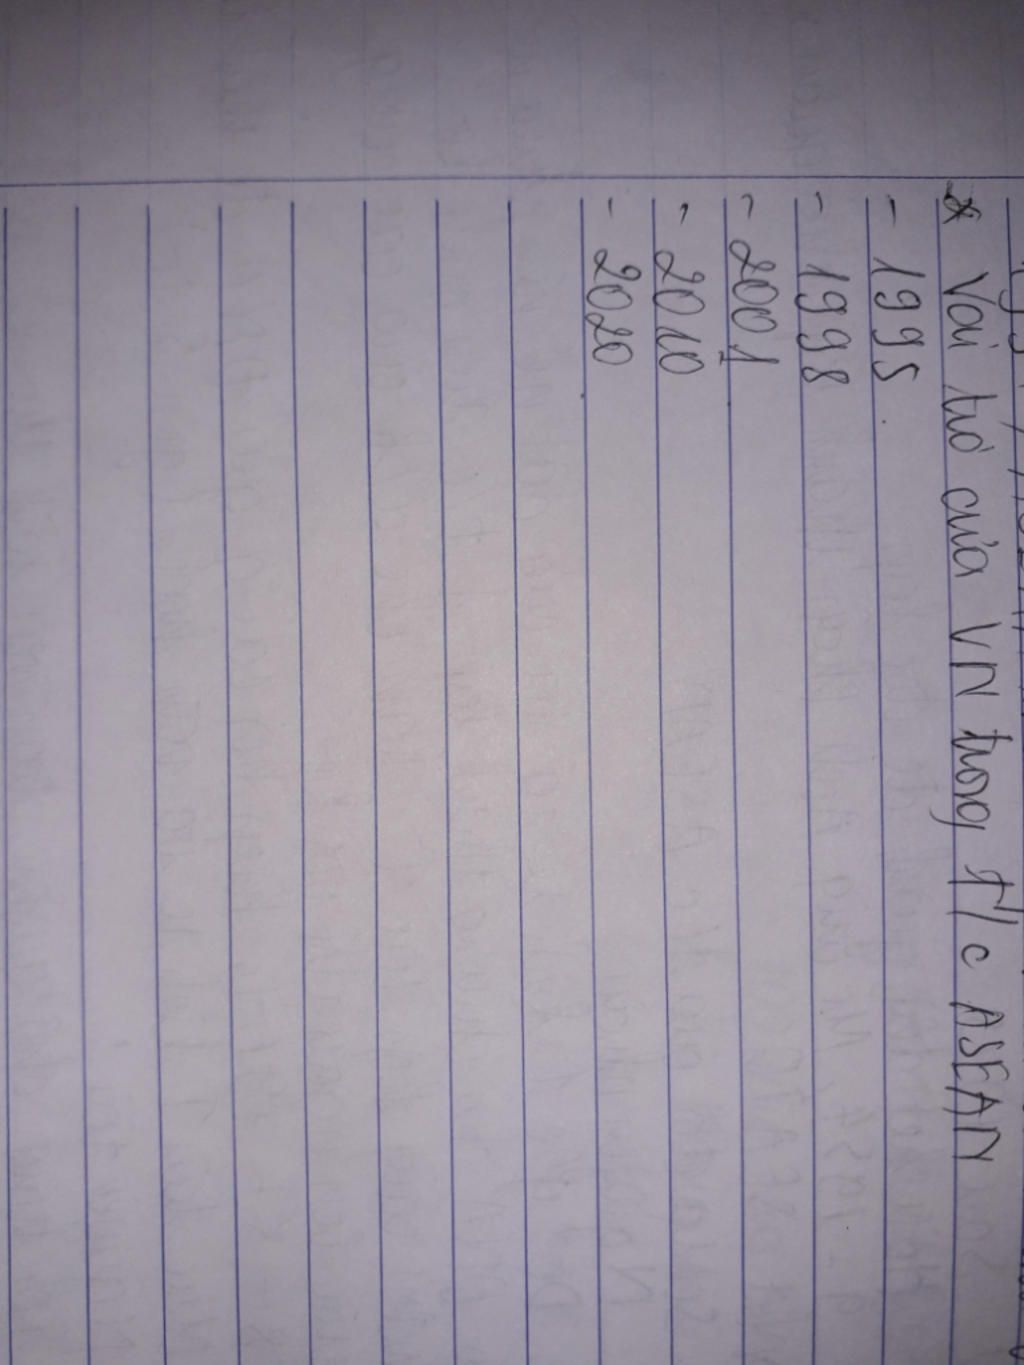 * Vai trò của VN trong T/c ASEAN
- 1995
- 1998
- 2001
- 2010
- 2020